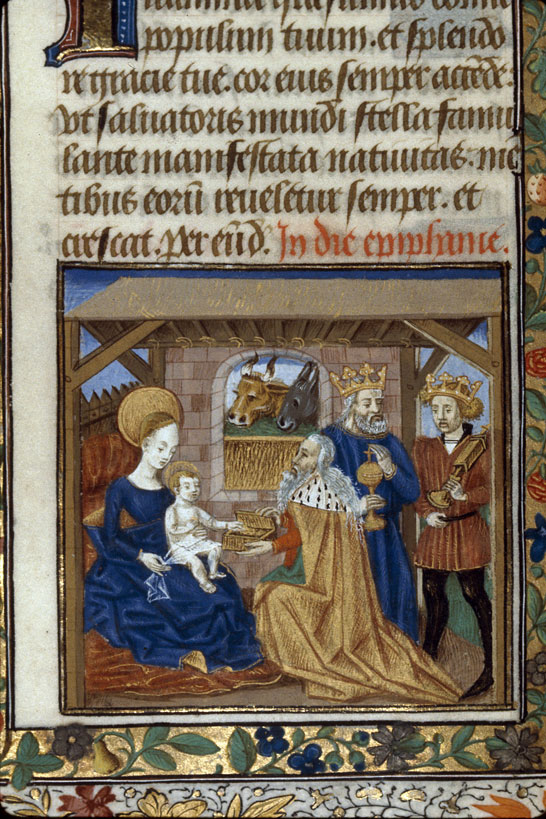 populum tuum. et splendo
re gracie tue. cor eius semper accēde.
Vt saluatoris mundi stella famu
lante manifestata natiuitas. mē
tibus eorū reueletur semper. et
crescat. Per eūd. In die epiphanie.